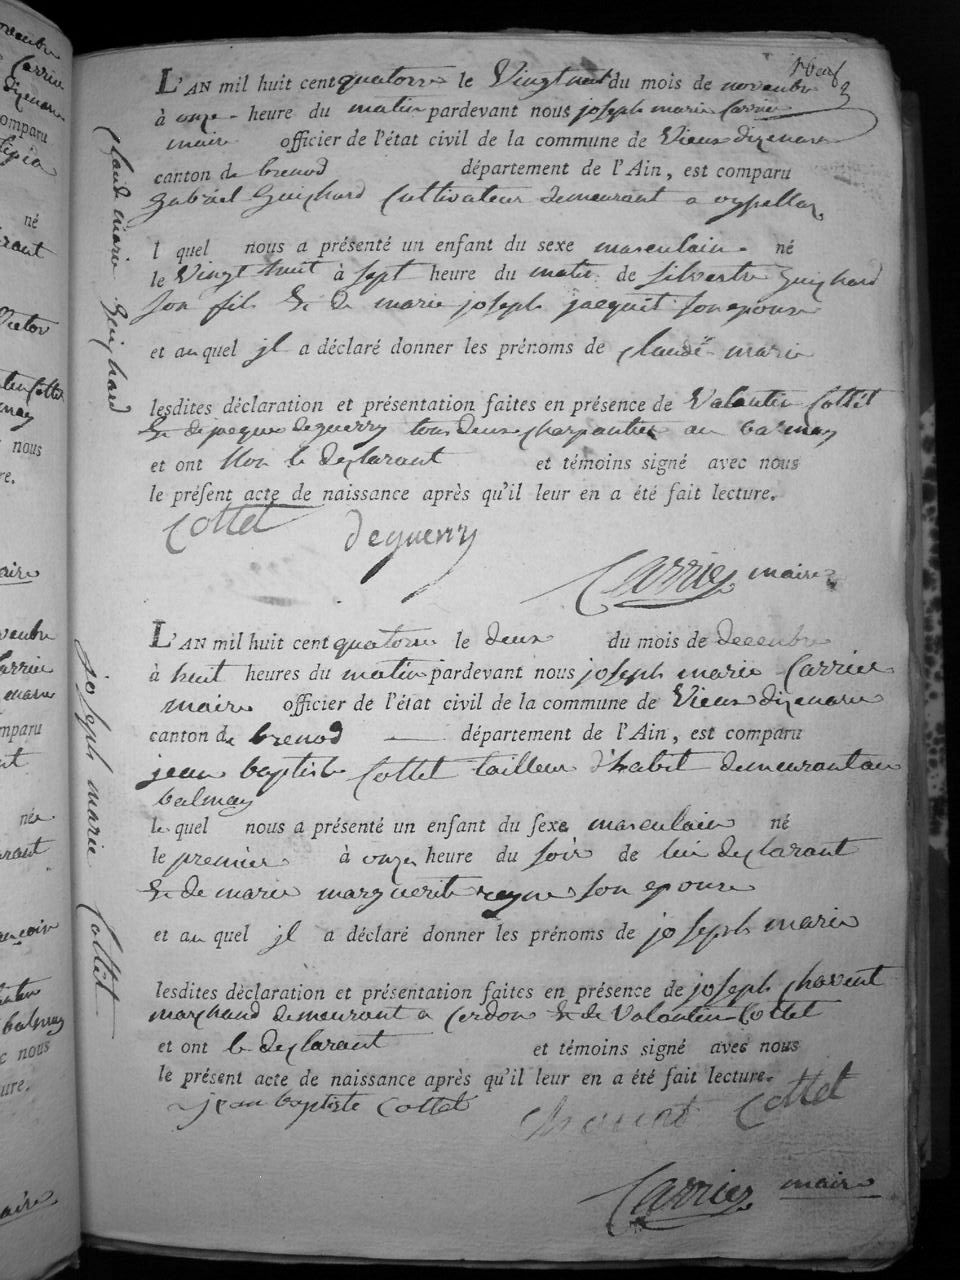 L'AN mil huit cent quatorze le Vingt neuf du mois de novembre
à onze heure du matin pardevant nous joseph marie Carrier
maire officier de l'état civil de la commune de Vieux dizenave
canton de brenod département de l'Ain, est comparu
gabriel Guichard Cultivateur demeurant a
l quel nous a présenté un enfant du sexe masculain né
le Vingt huit à sept heure du matin de silvestre Guichard
son fils & de marie joseph jacquit son epouse
et au quel jl a déclaré donner les prénoms de claude marie
lesdites déclaration et présentation faites en présence de Valentin Cottet
& de jacque deguerry tous deux charpantier au balmay
et ont Non le declarant et témoins signé avec nous
le présent acte de naissance après qu'il leur en a été fait lecture.
Cottet deguerry
Carrier maire
claude marie Guichard
L'AN mil huit cent quatorze le deux du mois de decembre
à huit heures du matin pardevant nous joseph marie Carrier
maire officier de l'état civil de la commune de Vieux dizenave
canton de brenod département de l'Ain, est comparu
jean baptiste Cottet tailleur d'habit demeurant au
balmay
le quel nous a présenté un enfant du sexe masculain né
le premier à onze heure du soir de lui declarant
& de marie marguerite reyne son epouse
et au quel jl a déclaré donner les prénoms de joseph marie
lesdites déclaration et présentation faites en présence de joseph chavent
marchand demeurant a Cerdon & de Valantin Cottet
et ont le declarant et témoins signé avec nous
le présent acte de naissance après qu'il leur en a été fait lecture.
jean baptiste Cottet Cottet
Carrier maire
joseph marie Cottet